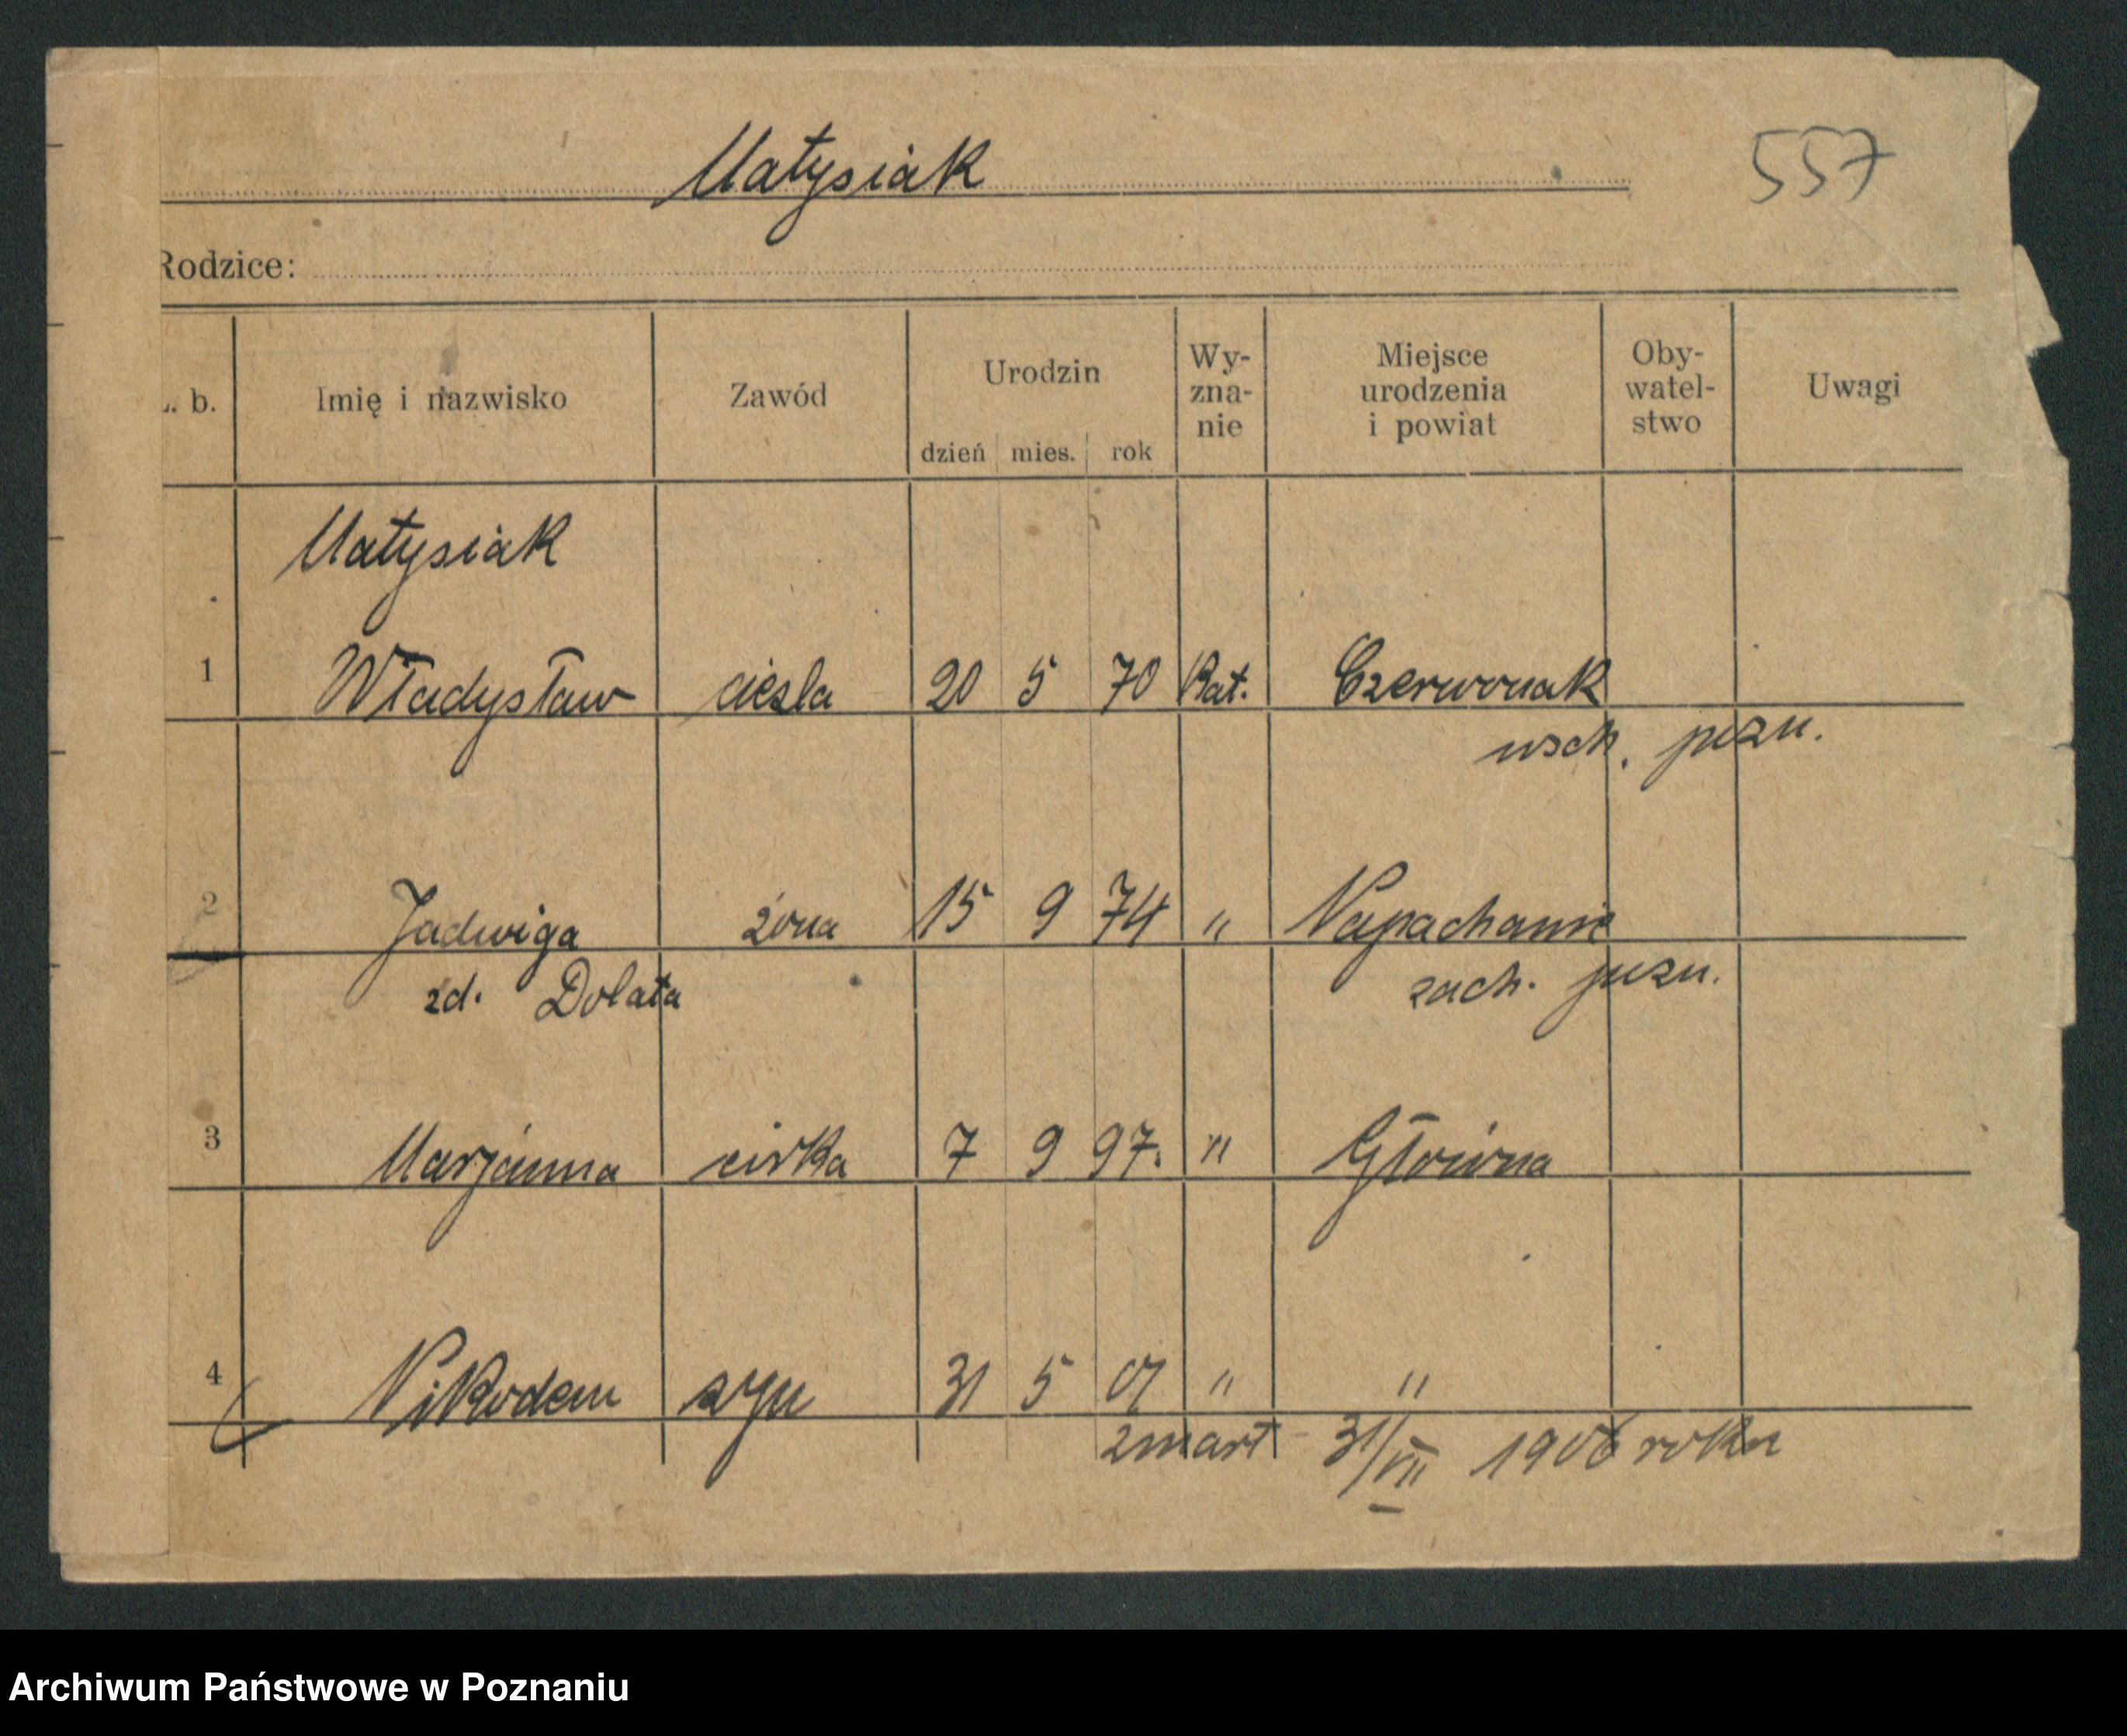 Matysiak
557
Rodzice:
L. b. Imię i nazwisko Zawód Urodzin dzień mies. rok Wy-zna-nie Miejsce urodzenia i powiat Oby-watel-stwo Uwagi
Matysiak
1 Władysław cieśla 20 5 70 Kat. Czerwonak
wsch. pozn.
2 Jadwiga żona 15 9 74 " Napachanie
zd. Dolata zach. pozn.
3 Marjanna córka 7 9 97. " Główna
4 Nikodem syn 31 5 01 " "
zmarł 31/VII 1906 roku
Archiwum Państwowe w Poznaniu